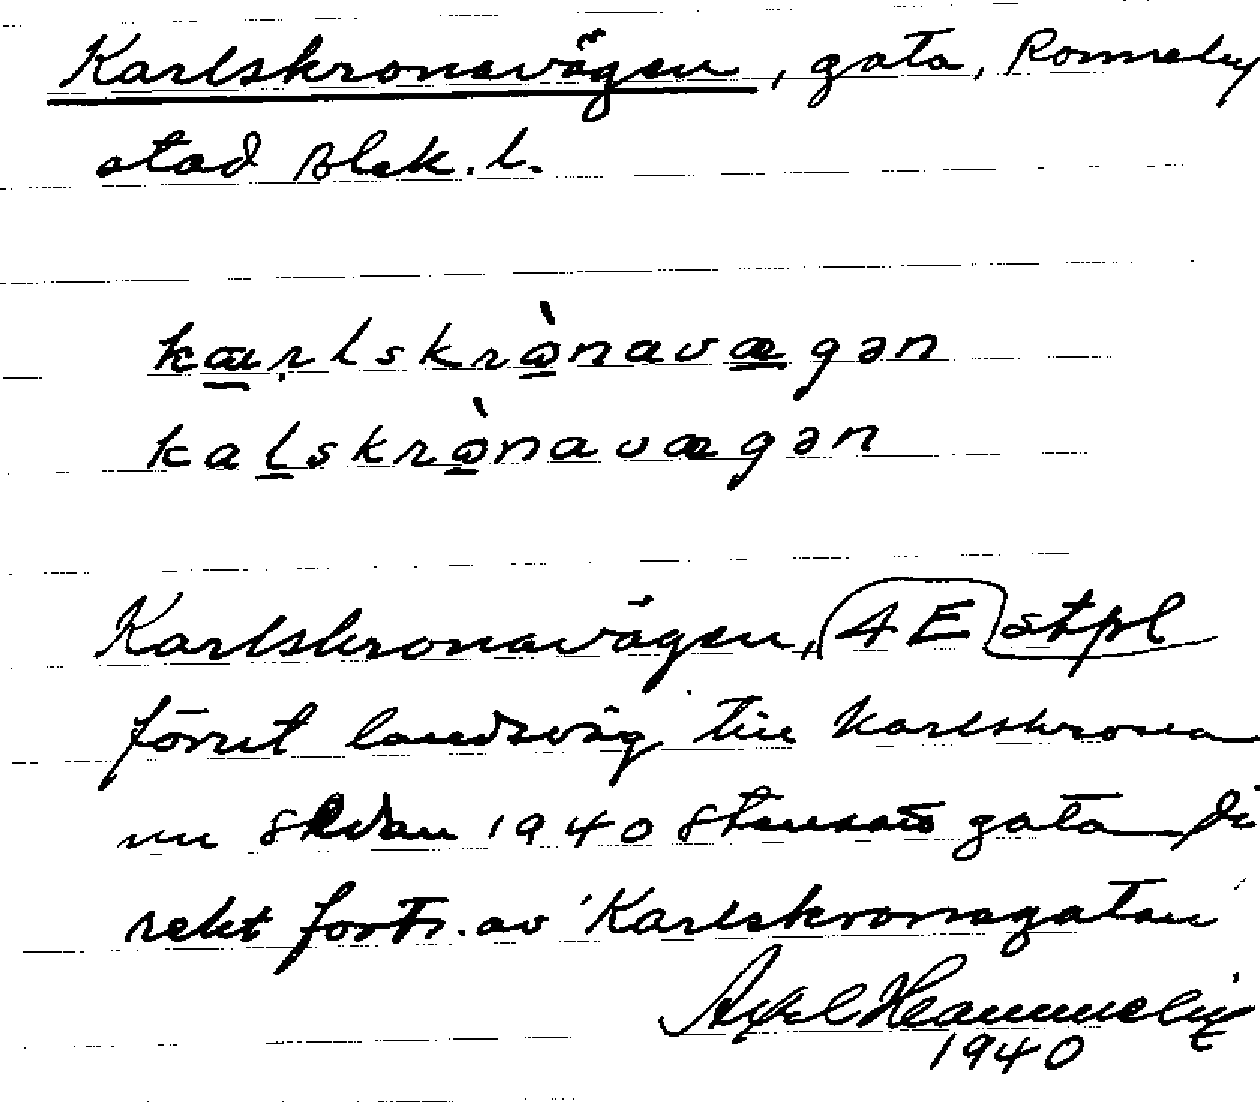 Karlskronavägen, gata, Ronneby
stad Blek. l.
kærlskrònavægən
kalskrònavægən
Karlskronavägen, 4 E stpl
förut landsväg till Karlskrona
nu sedan 1940 stensatt gata Di
rekt forts. av 'Karlskronagatan'
Axel Hammelin
1940